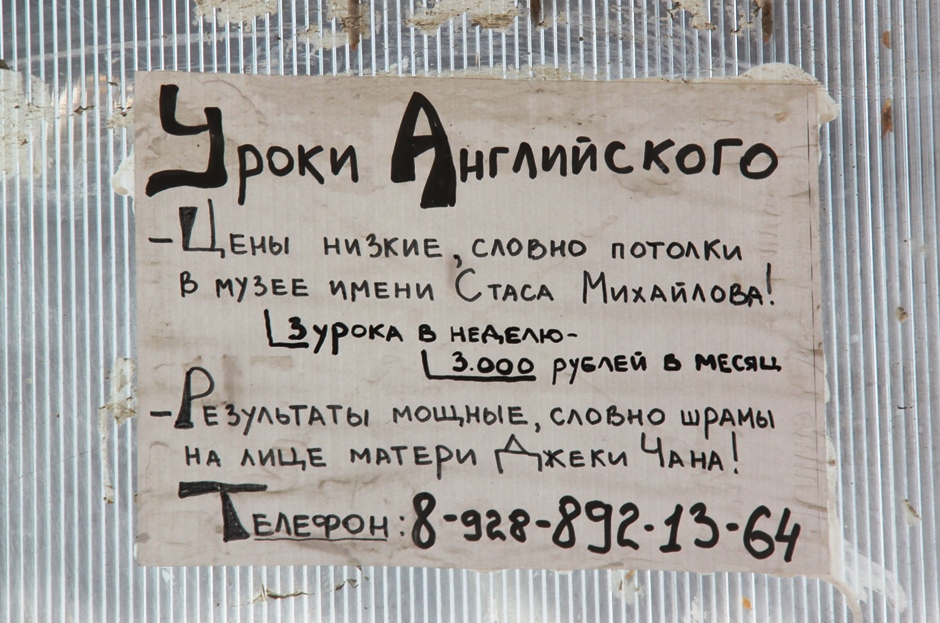 Уроки Английского
- Цены низкие, словно потолки
в музее имени Стаса Михайлова!
3 урока в неделю-
3.000 рублей в месяц
- Результаты мощные, словно шрамы
на лице матери Джеки Чана!
Телефон: 8-928-892-13-64